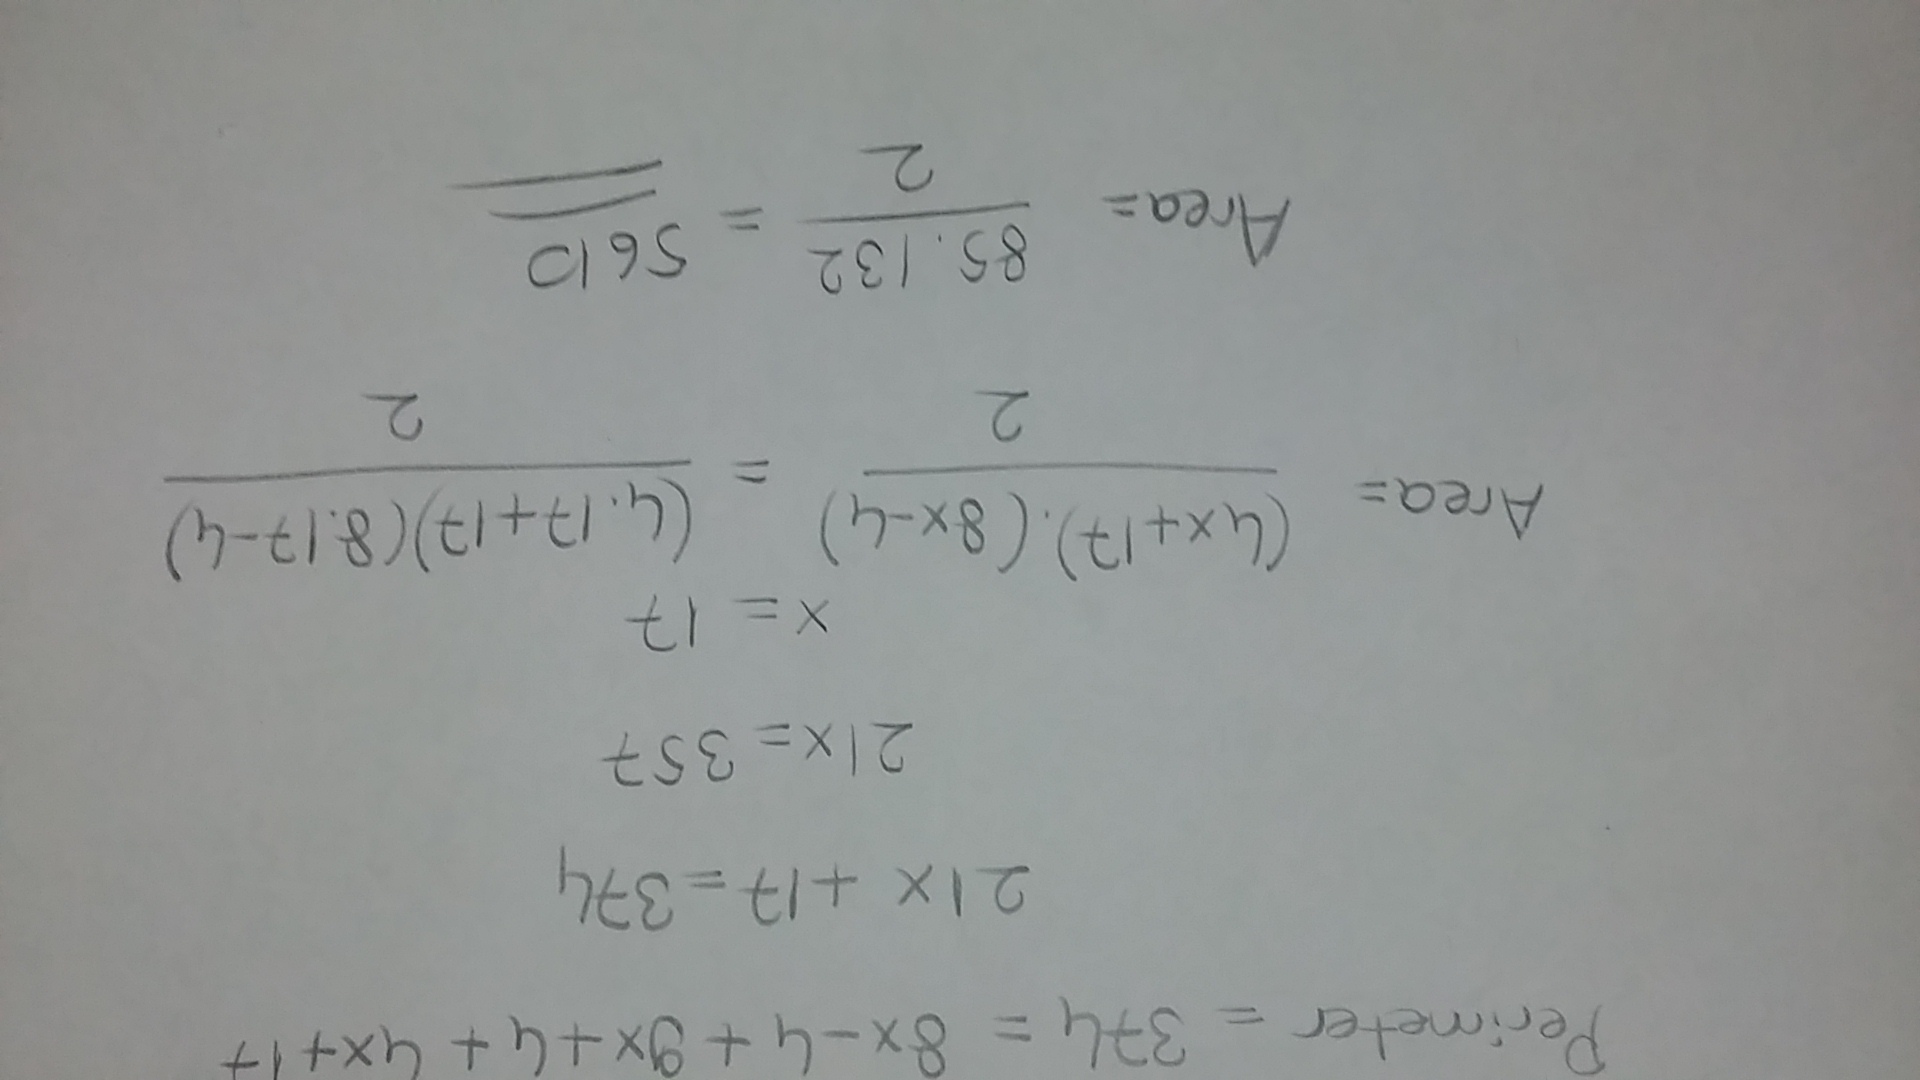 Perimeter = 374 = 8x-4 + 9x+4 + 4x+17
21x + 17 = 374
21x = 357
x = 17
Area= (4x+17).(8x-4) / 2 = (4.17+17)(8.17-4) / 2
Area= 85.132 / 2 = 5610